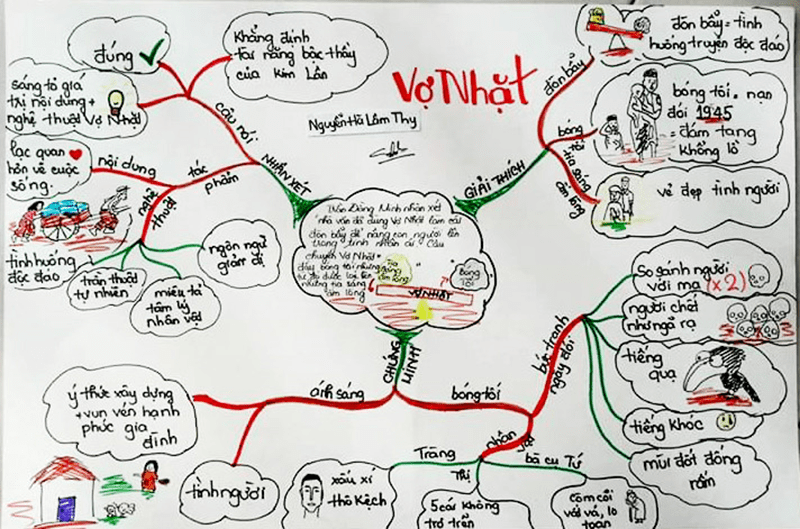 Vợ Nhặt
Nguyễn Hà Lâm Thy
Trần Đăng Ninh nhận xét
"nhà văn đã dùng Vợ Nhặt làm cái
đòn bẩy để nâng con người lên
trong tình nhân ái. Câu
chuyện Vợ Nhặt
đầy bóng tối nhưng
từ đó được loé lên
những tia sáng
ấm lòng"
Bóng
Tối
VỢ NHẶT
GIẢI THÍCH
đòn bẩy
đòn bẩy = tình
huống truyện độc đáo
bóng
tối
tia sáng
ấm lòng
bóng tối = nạn
đói 1945
= đám tang
khổng lồ
vẻ đẹp tình người
NHẬN XÉT
câu nói
đúng
Khẳng định
tài năng bậc thầy
của Kim Lân
sáng tỏ giá
trị nội dung +
nghệ thuật Vợ Nhặt
tác
phẩm
nội dung
lạc quan
hơn về cuộc
sống.
nghệ
thuật
tình huống
độc đáo
trần thuật
tự nhiên
miêu tả
tâm lý
nhân vật
ngôn ngữ
giản dị
CHỨNG
MINH
ánh sáng
ý thức xây dựng
+ vun vén hạnh
phúc gia
đình
tình người
bóng tối
bức tranh
ngày đói
So sánh người
với ma (x2)
người chết
như ngả rạ
tiếng
quạ
tiếng khóc
mùi đốt đống
rấm
nhân
vật
Tràng
xấu xí
thô kệch
Thị
5 cái không
trơ trẽn
bà cụ Tứ
Còm cõi
vái vả, lo
toan